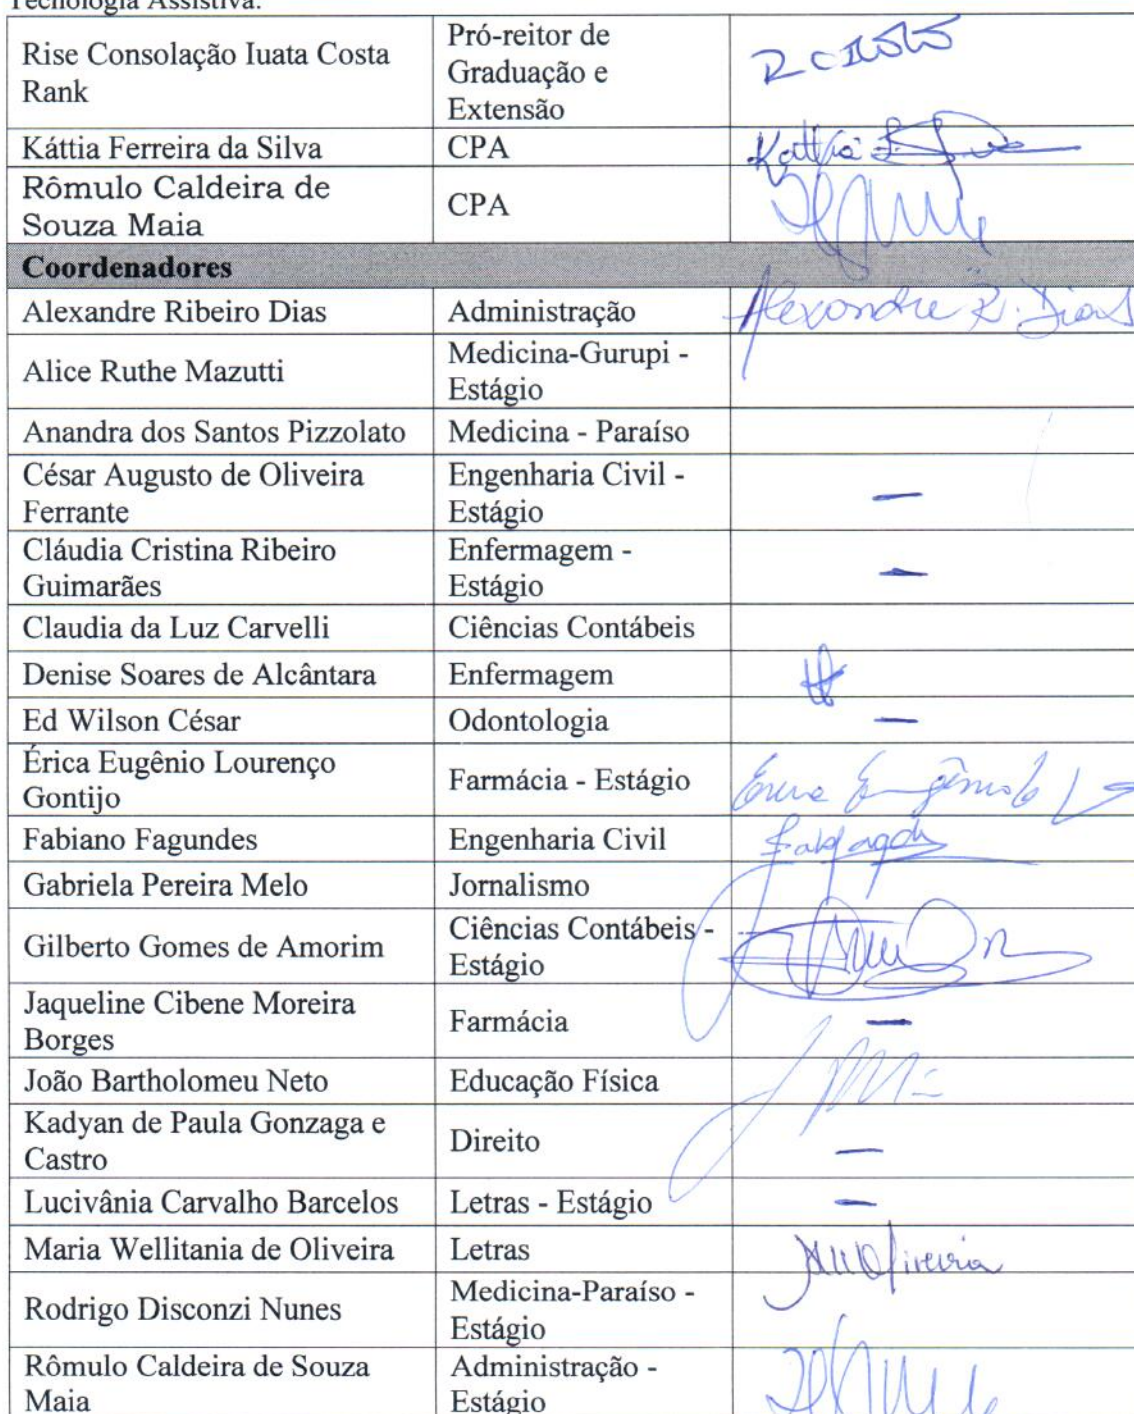 Tecnologia Assistiva.
Rise Consolação Iuata Costa Rank
Pró-reitor de Graduação e Extensão
Káttia Ferreira da Silva
CPA
Káttia F.
Rômulo Caldeira de Souza Maia
CPA
Coordenadores
Alexandre Ribeiro Dias
Administração
Alexandre R. Dias
Alice Ruthe Mazutti
Medicina-Gurupi - Estágio
Anandra dos Santos Pizzolato
Medicina - Paraíso
César Augusto de Oliveira Ferrante
Engenharia Civil - Estágio
—
Cláudia Cristina Ribeiro Guimarães
Enfermagem - Estágio
—
Claudia da Luz Carvelli
Ciências Contábeis
Denise Soares de Alcântara
Enfermagem
Ed Wilson César
Odontologia
—
Érica Eugênio Lourenço Gontijo
Farmácia - Estágio
Fabiano Fagundes
Engenharia Civil
Gabriela Pereira Melo
Jornalismo
Gilberto Gomes de Amorim
Ciências Contábeis - Estágio
Jaqueline Cibene Moreira Borges
Farmácia
—
João Bartholomeu Neto
Educação Física
Kadyan de Paula Gonzaga e Castro
Direito
—
Lucivânia Carvalho Barcelos
Letras - Estágio
—
Maria Wellitania de Oliveira
Letras
Rodrigo Disconzi Nunes
Medicina-Paraíso - Estágio
Rômulo Caldeira de Souza Maia
Administração - Estágio